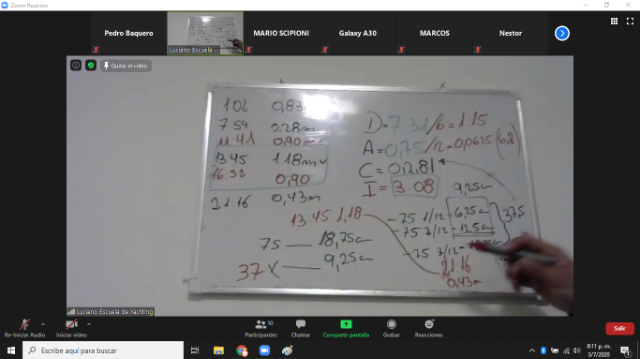 Zoom Reunión
Pedro Baquero
Luciano Escuela ...
MARIO SCIPIONI
Galaxy A30
MARCOS
Nestor
Quitar el video
102 0,83
754 0,28m
11:41 0,90m
13:45 1,18m
16:32 0,90
21:16 0,43m
D=7:31/6=1:15
A=0,75/12=0,0625
C=0,281
I=3.08
9,25cm
13:45 1,18
-75 1/12 - 6,25cm
-75 2/12 - 12,5cm
-75 3/12 -
375
75 — 18,75cm
37 X — 9,25cm
21:16
0,43m
Luciano Escuela de Yachting
Re-Iniciar Audio
Iniciar video
Participantes
10
Chatear
Compartir pantalla
Grabar
Reacciones
Salir
Escribe aquí para buscar
8:11 p. m.
3/7/2020